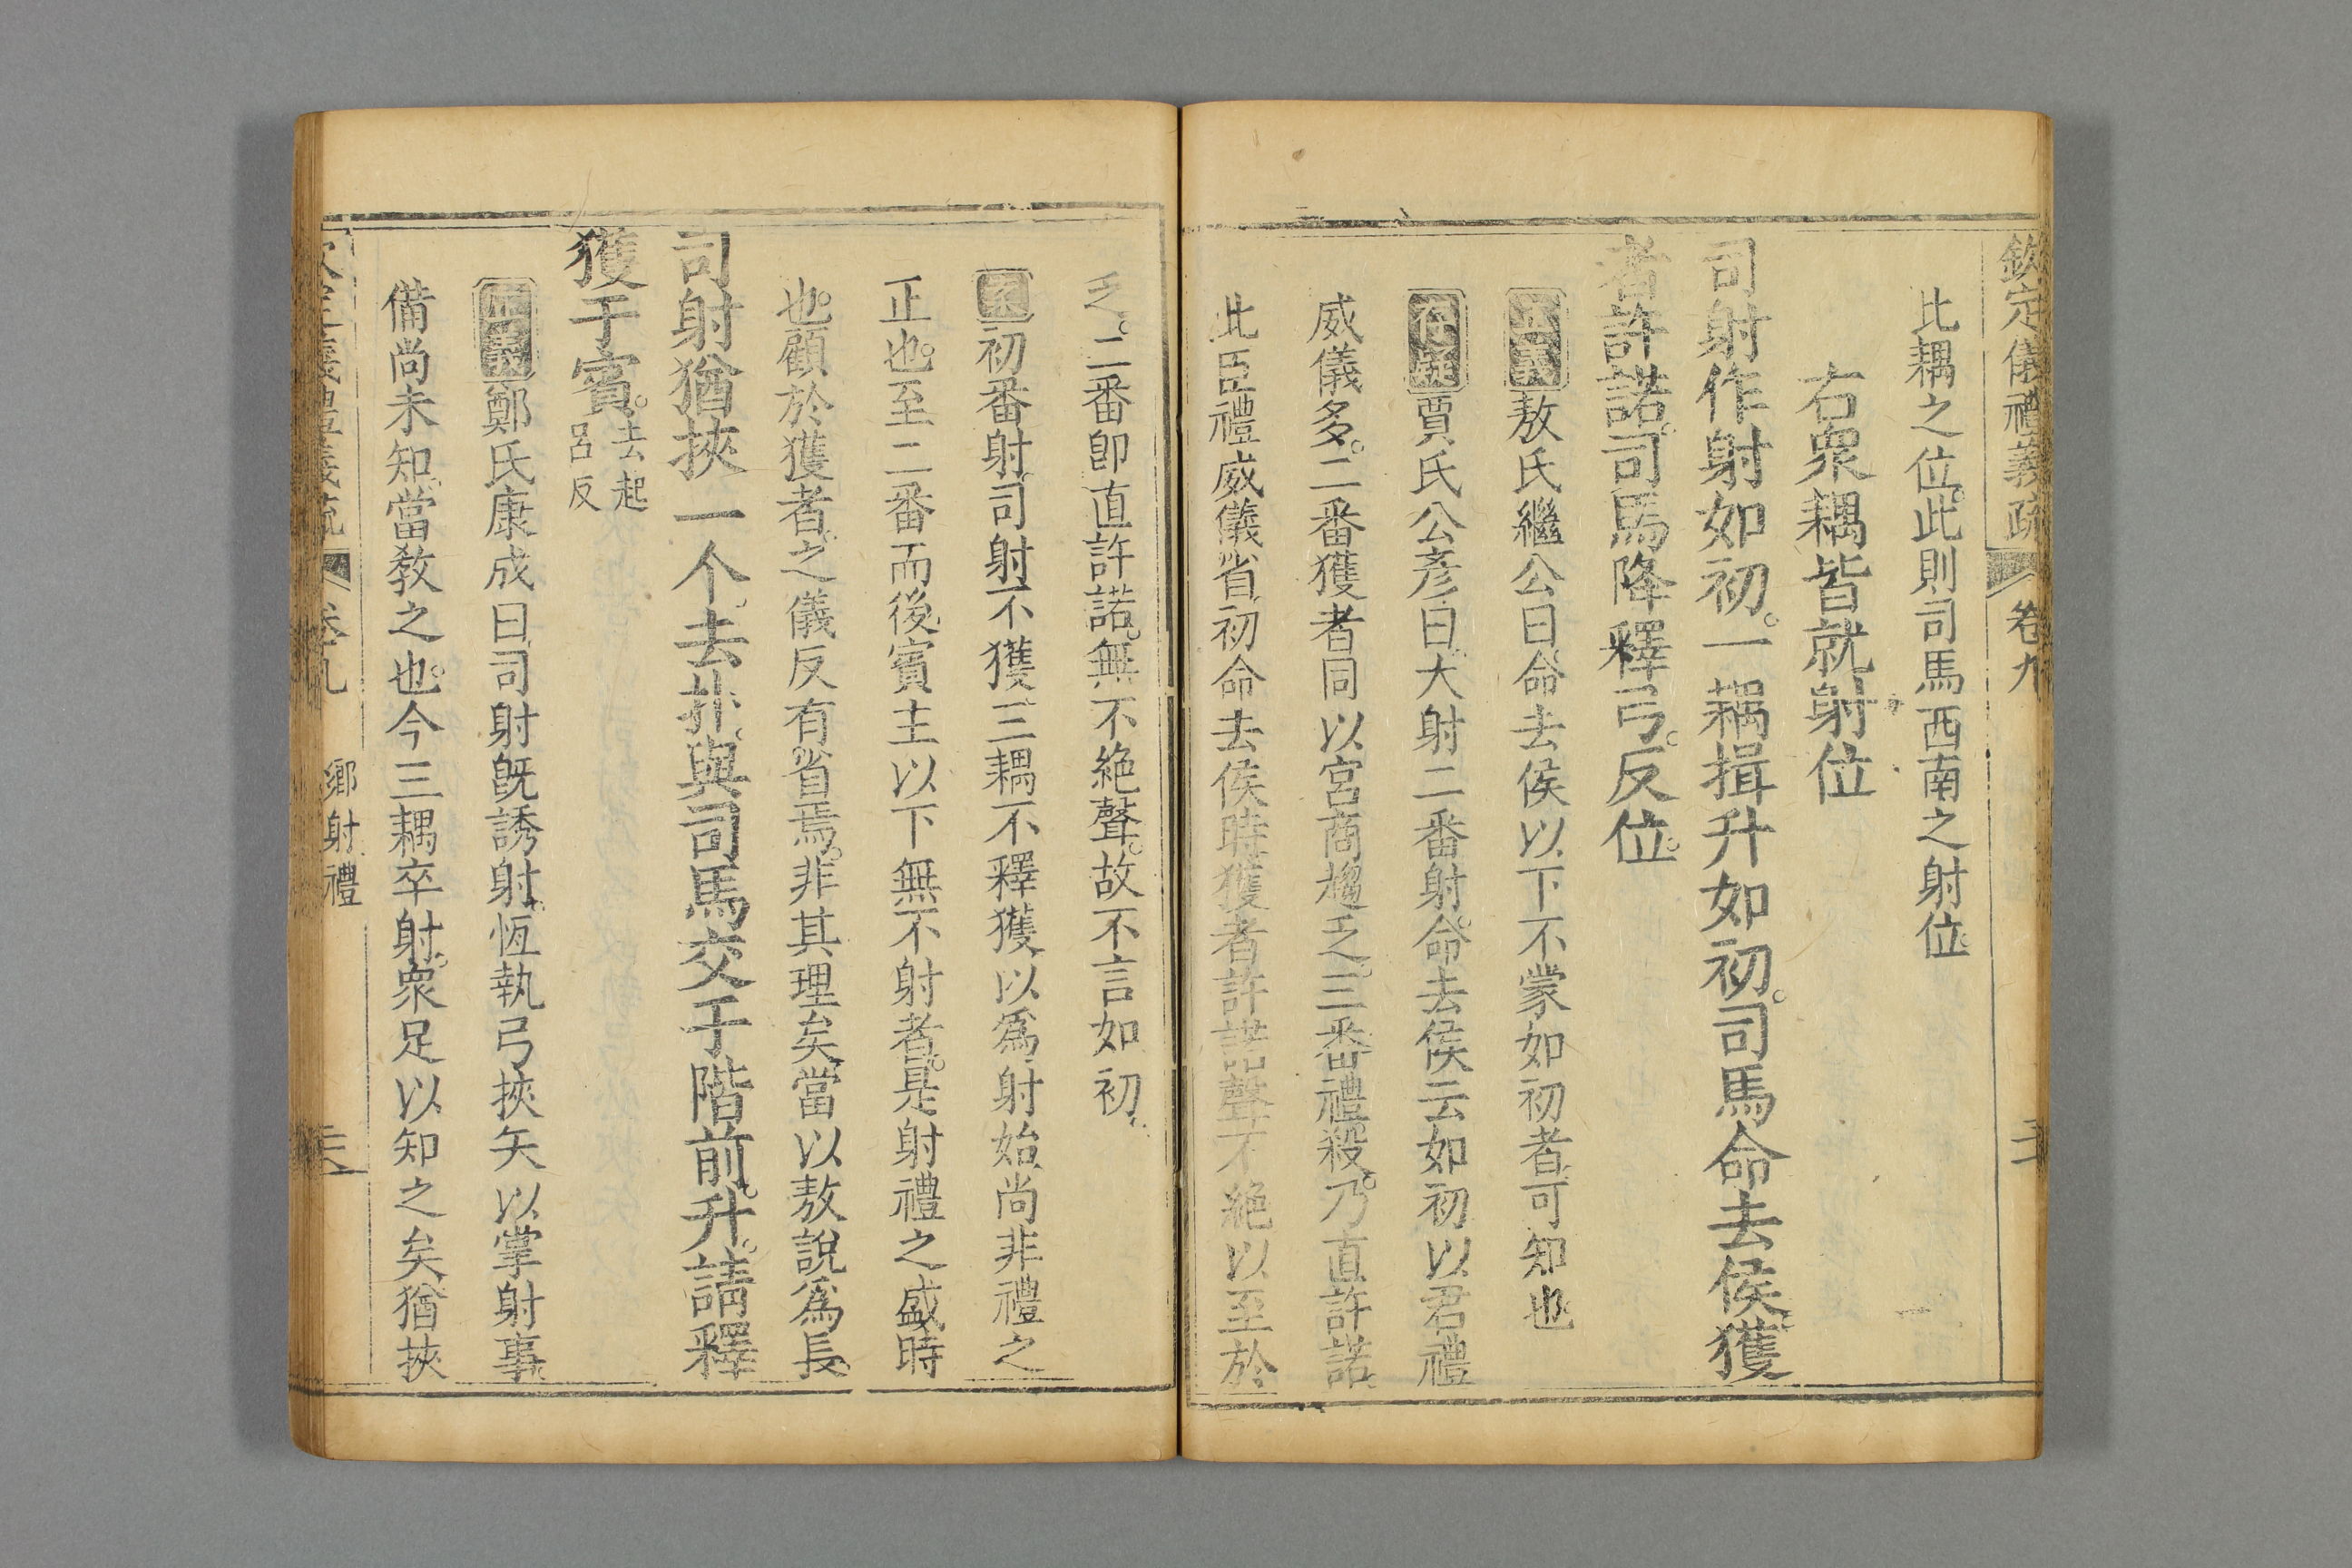 欽定儀禮義疏 卷九
比耦之位。此則司馬西南之射位。
右衆耦皆就射位
司射作射如初。一耦揖升如初。司馬命去侯。獲
者許諾。司馬降。釋弓。反位。
正義敖氏繼公曰。命去侯以下不蒙如初者。可知也。
存疑賈氏公彥曰。大射二番射。命去侯云如初。以君禮
威儀多。二番獲者同以宮商趨乏。三番禮殺。乃直許諾。
此臣禮威儀省。初命去侯時。獲者許諾聲不絕以至於
乏。二番卽直許諾。無不絕聲。故不言如初。
案初番射。司射不獲。三耦不釋獲。以爲射始。尚非禮之
正也。至二番而後賓主以下無不射者。是射禮之盛時
也。顧於獲者之儀反有省焉。非其理矣。當以敖說爲長。
司射猶挾一个。去扑。與司馬交于階前。升。請釋
獲于賓。去起呂反
正義鄭氏康成曰。司射旣誘射。恆執弓挾矢以掌射事。
備尚未知。當敎之也。今三耦卒射。衆足以知之矣。猶挾
卷九 鄉射禮